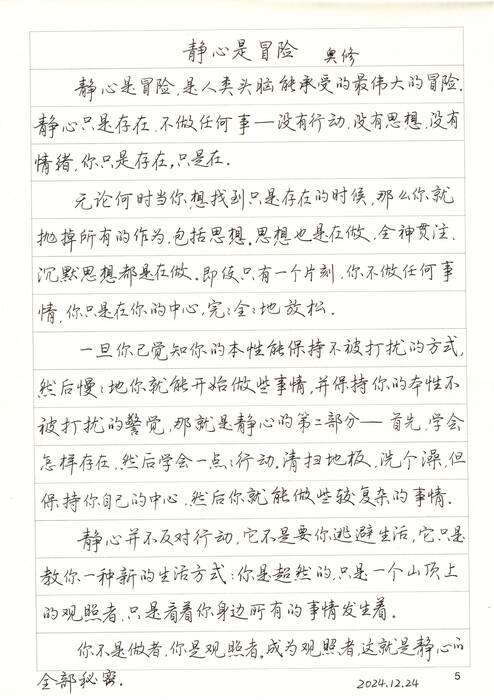 静心是冒险 奥修
静心是冒险,是人类头脑能承受的最伟大的冒险.
静心只是存在,不做任何事—没有行动,没有思想,没有
情绪,你只是存在,只是在.
无论何时当你想找到只是存在的时候,那么你就
抛掉所有的作为,包括思想.思想也是在做,全神贯注.
沉默思想都是在做.即使只有一个片刻,你不做任何事
情,你只是在你的中心,完:全:地放松.
一旦你已觉知你的本性能保持不被打扰的方式,
然后慢:地你就能开始做些事情,并保持你的本性不
被打扰的警觉,那就是静心的第二部分—首先,学会
怎样存在,然后学会一点:行动.清扫地板,洗个澡,但
保持你自己的中心,然后你就能做些较复杂的事情.
静心并不反对行动,它不是要你逃避生活,它只是
教你一种新的生活方式:你是超然的,只是一个山顶上
的观照者,只是看着你身边所有的事情发生着.
你不是做者,你是观照者.成为观照者,这就是静心的
全部秘密.
2024.12.24
5